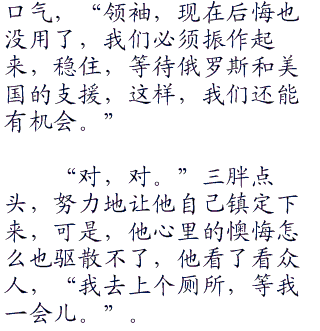 口气，“领袖，现在后悔也
没用了，我们必须振作起
来，稳住，等待俄罗斯和美
国的支援，这样，我们还能
有机会。”
“对，对。”三胖点
头，努力地让他自己镇定下
来，可是，他心里的懊悔怎
么也驱散不了，他看了看众
人，“我去上个厕所，等我
一会儿。”。